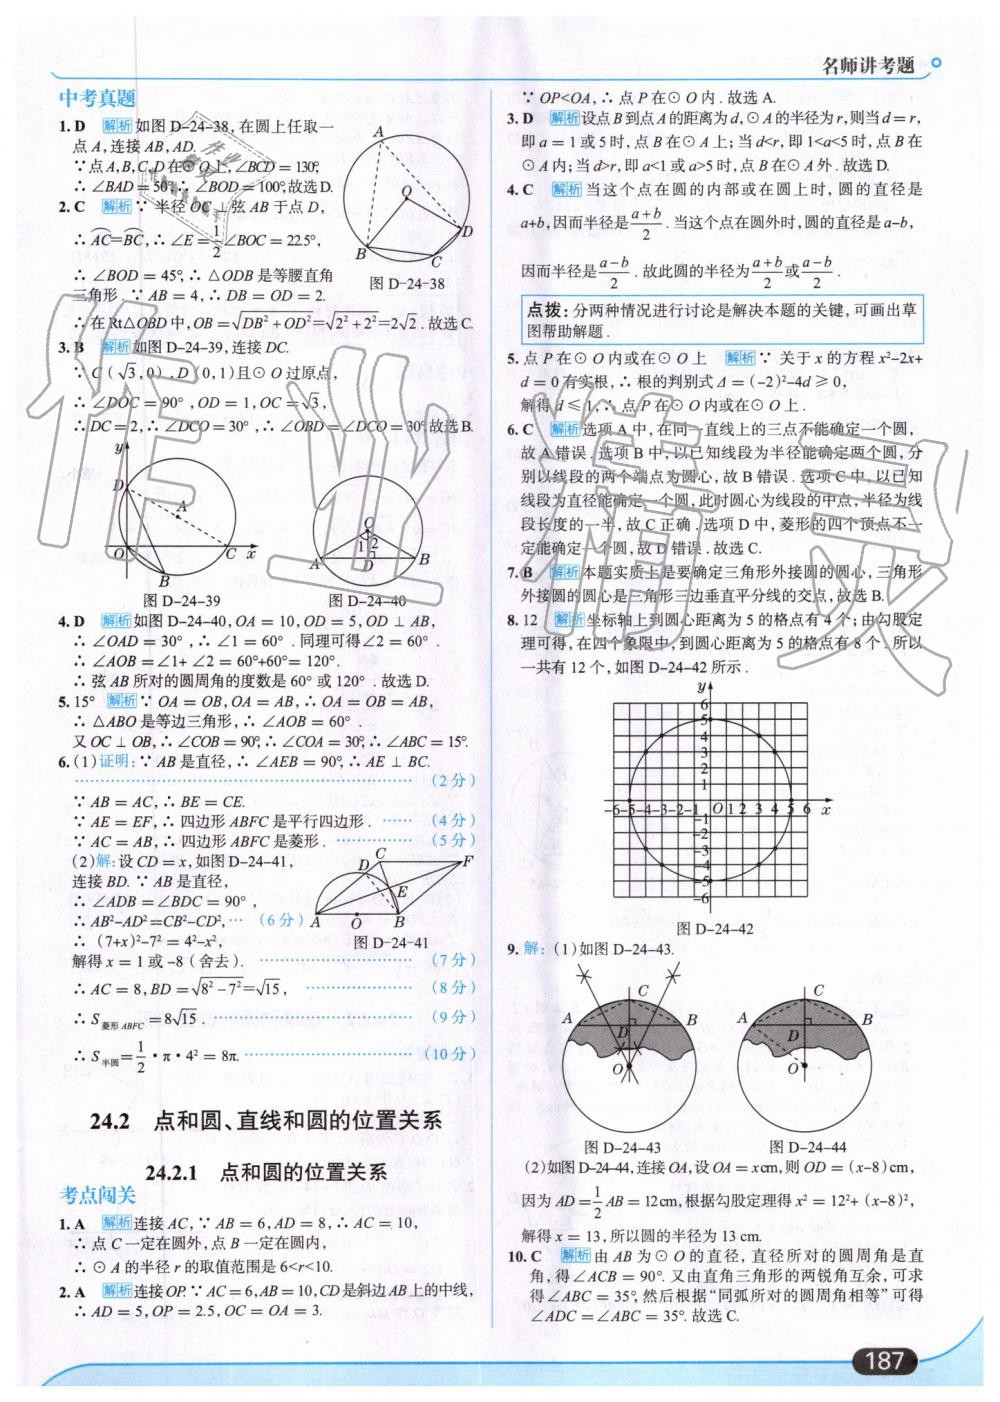 名师讲考题
中考真题
1. D 解析 如图 D-24-38, 在圆上任取一
点 A, 连接 AB, AD.
∵点 A, B, C, D 在⊙O 上, ∠BCD = 130°,
∴ ∠BAD = 50°, ∴ ∠BOD = 100°, 故选 D.
2. C 解析 ∵ 半径 OC ⊥ 弦 AB 于点 D,
∴ AC=BC, ∴ ∠E = 1/2 ∠BOC = 22.5°,
∴ ∠BOD = 45°, ∴ △ODB 是等腰直角
三角形. ∵ AB = 4, ∴ DB = OD = 2.
图 D-24-38
∴ 在 Rt△OBD 中, OB = √(DB² + OD²) = √(2² + 2²) = 2√2. 故选 C.
3. B 解析 如图 D-24-39, 连接 DC.
∵ C (√3, 0), D (0, 1) 且⊙O 过原点,
∴ ∠DOC = 90°, OD = 1, OC = √3,
∴ DC = 2, ∴ ∠DCO = 30°, ∴ ∠OBD = ∠DCO = 30°. 故选 B.
图 D-24-39 图 D-24-40
4. D 解析 如图 D-24-40, OA = 10, OD = 5, OD ⊥ AB,
∴ ∠OAD = 30°, ∴ ∠1 = 60°. 同理可得∠2 = 60°.
∴ ∠AOB = ∠1 + ∠2 = 60°+60°= 120°.
∴ 弦 AB 所对的圆周角的度数是 60° 或 120°. 故选 D.
5. 15° 解析 ∵ OA = OB, OA = AB, ∴ OA = OB = AB,
∴ △ABO 是等边三角形, ∴ ∠AOB = 60°.
又 OC ⊥ OB, ∴ ∠COB = 90°, ∴ ∠COA = 30°, ∴ ∠ABC = 15°.
6. (1) 证明: ∵ AB 是直径, ∴ ∠AEB = 90°, ∴ AE ⊥ BC.
(2 分)
∵ AB = AC, ∴ BE = CE.
∵ AE = EF, ∴ 四边形 ABFC 是平行四边形. …… (4 分)
∵ AC = AB, ∴ 四边形 ABFC 是菱形. ………… (5 分)
(2) 解: 设 CD = x, 如图 D-24-41,
连接 BD. ∵ AB 是直径,
∴ ∠ADB = ∠BDC = 90°,
∴ AB²-AD²=CB²-CD², … (6 分)
∴ (7+x)²-7² = 4²-x²,
图 D-24-41
解得 x = 1 或 -8 (舍去). …………………… (7 分)
∴ AC = 8, BD = √(8² - 7²) = √15, …………………… (8 分)
∴ S菱形ABFC = 8√15. …………………… (9 分)
∴ S半圆 = 1/2 · π · 4² = 8π. …………………… (10 分)
24.2 点和圆、直线和圆的位置关系
24.2.1 点和圆的位置关系
考点闯关
1. A 解析 连接 AC, ∵ AB = 6, AD = 8, ∴ AC = 10,
∴ 点 C 一定在圆外, 点 B 一定在圆内,
∴ ⊙A 的半径 r 的取值范围是 6<r<10.
2. A 解析 连接 OP. ∵ AC = 6, AB = 10, CD 是斜边 AB 上的中线,
∴ AD = 5, OP = 2.5, OC = OA = 3.
∵ OP<OA, ∴ 点 P 在⊙O 内. 故选 A.
3. D 解析 设点 B 到点 A 的距离为 d, ⊙A 的半径为 r, 则当 d = r,
即 a = 1 或 5 时, 点 B 在⊙A 上; 当 d<r, 即 1<a<5 时, 点 B 在
⊙A 内; 当 d>r, 即 a<1 或 a>5 时, 点 B 在⊙A 外. 故选 D.
4. C 解析 当这个点在圆的内部或在圆上时, 圆的直径是
a+b, 因而半径是 (a+b)/2. 当这个点在圆外时, 圆的直径是 a-b,
因而半径是 (a-b)/2. 故此圆的半径为 (a+b)/2 或 (a-b)/2.
点拨: 分两种情况进行讨论是解决本题的关键, 可画出草
图帮助解题.
5. 点 P 在⊙O 内或在⊙O 上 解析 ∵ 关于 x 的方程 x²-2x+
d = 0 有实根, ∴ 根的判别式 Δ = (-2)²-4d ≥ 0,
解得 d ≤ 1, ∴ 点 P 在⊙O 内或在⊙O 上.
6. C 解析 选项 A 中, 在同一直线上的三点不能确定一个圆,
故 A 错误. 选项 B 中, 以已知线段为半径能确定两个圆, 分
别以线段的两个端点为圆心, 故 B 错误. 选项 C 中, 以已知
线段为直径能确定一个圆, 此时圆心为线段的中点, 半径为线
段长度的一半, 故 C 正确. 选项 D 中, 菱形的四个顶点不一
定能确定一个圆, 故 D 错误. 故选 C.
7. B 解析 本题实质上是要确定三角形外接圆的圆心, 三角形
外接圆的圆心是三角形三边垂直平分线的交点, 故选 B.
8. 12 解析 坐标轴上到圆心距离为 5 的格点有 4 个; 由勾股定
理可得, 在四个象限中, 到圆心距离为 5 的格点有 8 个. 所以
一共有 12 个, 如图 D-24-42 所示.
图 D-24-42
9. 解: (1) 如图 D-24-43.
图 D-24-43 图 D-24-44
(2) 如图 D-24-44, 连接 OA, 设 OA = x cm, 则 OD = (x-8) cm,
因为 AD = 1/2 AB = 12 cm, 根据勾股定理得 x² = 12²+ (x-8)²,
解得 x = 13, 所以圆的半径为 13 cm.
10. C 解析 由 AB 为⊙O 的直径, 直径所对的圆周角是直
角, 得∠ACB = 90°. 又由直角三角形的两锐角互余, 可求
得∠ABC = 35°, 然后根据“同弧所对的圆周角相等”可得
∠ADC = ∠ABC = 35°. 故选 C.
187
作业精灵